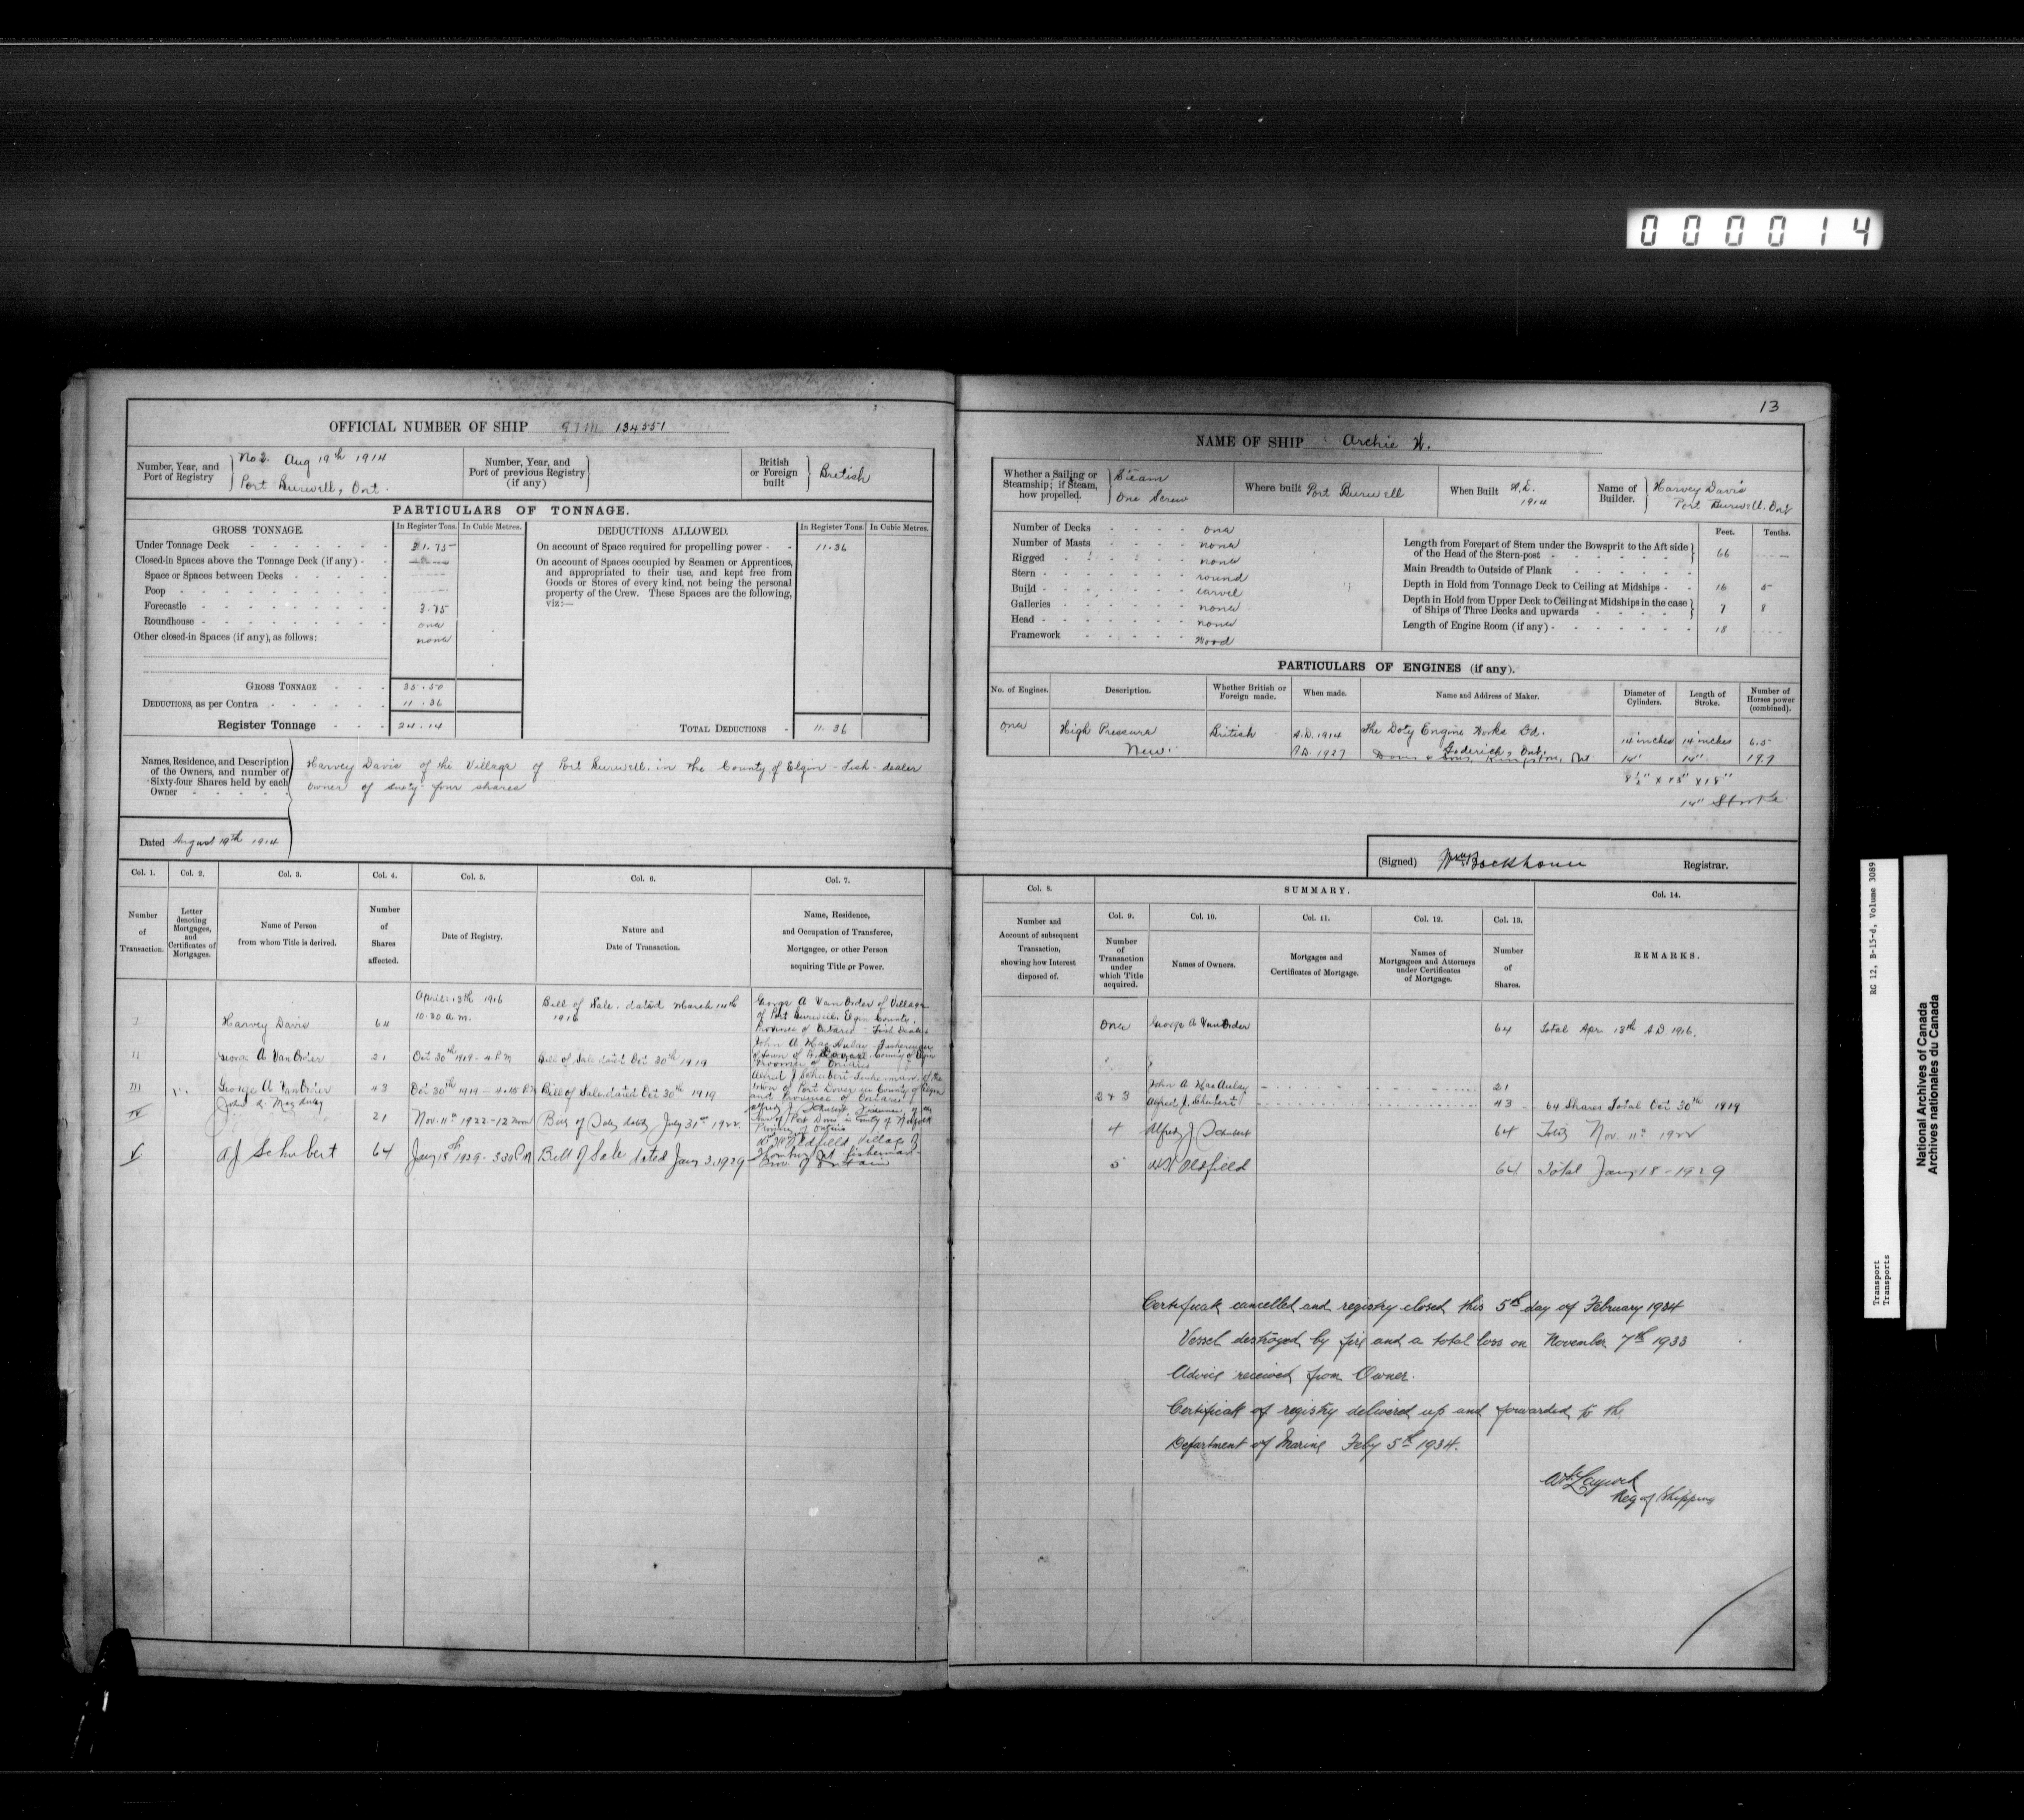 000014
OFFICIAL NUMBER OF SHIP 134551
Number, Year, and Port of Registry
No 2. Aug 19th 1914
Port Burwell, Ont.
Number, Year, and Port of previous Registry (if any)
British or Foreign built
British
PARTICULARS OF TONNAGE.
GROSS TONNAGE.
In Register Tons.
In Cubic Metres.
DEDUCTIONS ALLOWED.
In Register Tons.
In Cubic Metres.
Under Tonnage Deck 31.75
Closed-in Spaces above the Tonnage Deck (if any)
Space or Spaces between Decks
Poop
Forecastle 3.75
Roundhouse one
Other closed-in Spaces (if any), as follows: none
On account of Space required for propelling power 11.36
On account of Spaces occupied by Seamen or Apprentices,
and appropriated to their use, and kept free from
Goods or Stores of every kind, not being the personal
property of the Crew. These Spaces are the following,
viz:—
GROSS TONNAGE 35.50
DEDUCTIONS, as per Contra 11.36
Register Tonnage 24.14
TOTAL DEDUCTIONS 11.36
Names, Residence, and Description
of the Owners, and number of
Sixty-four Shares held by each
Owner
Harvey Davis of the Village of Port Burwell. in the County of Elgin - Fish-dealer
owner of sixty four shares
Dated August 19th 1914
Col. 1.
Col. 2.
Col. 3.
Col. 4.
Col. 5.
Col. 6.
Col. 7.
Number of Transaction.
Letter denoting Mortgages, and Certificates of Mortgages.
Name of Person from whom Title is derived.
Number of Shares affected.
Date of Registry.
Nature and Date of Transaction.
Name, Residence, and Occupation of Transferee, Mortgagee, or other Person acquiring Title or Power.
I Harvey Davis 64 April 18th 1916 10.30 a.m. Bill of Sale. dated March 14th 1916 George A Van Order of Village
of Port Burwell. Elgin County.
Province of Ontario - Fish Dealer
II George A Van Order 21 Oct 30th 1919 - 4 P.M Bill of Sale dated Oct 30th 1919 John A. MacAulay
County of Elgin
Province of Ontario
III George A Van Order 43 Oct 30th 1919 - 4.15 P.M Bill of Sale dated Oct 30th 1919 Alfred J Schubert Fisherman of the
town of Port Dover in County of Elgin
and Province of Ontario
IV 21 Nov. 11th 1922 - 12 noon Bill of Sale dated July 31st 1922 Alfred J Schubert
Port Dover in County of Norfolk
Province of Ontario
V A J Schubert 64 Jany 18th 1929 - 3.30 P.M Bill of Sale dated Jany 3. 1929 Oldfield, Village of
fisherman
Prov. of Ontario
13
NAME OF SHIP Archie W.
Whether a Sailing or Steamship; if Steam, how propelled.
Steam
One Screw
Where built Port Burwell
When Built A.D. 1914
Name of Builder.
Harvey Davis
Port Burwell. Ont
Number of Decks one
Number of Masts none
Rigged none
Stern round
Build carvel
Galleries none
Head none
Framework wood
Feet.
Tenths.
Length from Forepart of Stem under the Bowsprit to the Aft side of the Head of the Stern-post 66
Main Breadth to Outside of Plank
Depth in Hold from Tonnage Deck to Ceiling at Midships 16 5
Depth in Hold from Upper Deck to Ceiling at Midships in the case of Ships of Three Decks and upwards 7 8
Length of Engine Room (if any) 18
PARTICULARS OF ENGINES (if any).
No. of Engines.
Description.
Whether British or Foreign made.
When made.
Name and Address of Maker.
Diameter of Cylinders.
Length of Stroke.
Number of Horses power (combined).
one High Pressure British A.D. 1914 The Doty Engine Works Co. Goderich, Ont. 14 inches 14 inches 6.5
New. A.D. 1927 Davis & Sons, Kingston, Ont 14" 14" 19.7
14" Stroke
(Signed) Registrar.
Col. 8.
SUMMARY.
Col. 9.
Col. 10.
Col. 11.
Col. 12.
Col. 13.
Col. 14.
Number and Account of subsequent Transaction, showing how Interest disposed of.
Number of Transaction under which Title acquired.
Names of Owners.
Mortgages and Certificates of Mortgage.
Names of Mortgagees and Attorneys under Certificates of Mortgage.
Number of Shares.
REMARKS.
one George A Van Order 64 Total Apr 18th A.D 1916.
2 & 3 John A MacAulay 21
Alfred J. Schubert 43 64 Shares Total Oct 30th 1919
4 Alfred J Schubert 64 Total Nov. 11th 1922
5 Oldfield 64 Total Jany 18 - 1929
Certificate cancelled and registry closed this 5th day of February 1934
Vessel destroyed by fire and a total loss on November 7th 1933
Advice received from Owner.
Certificate of registry delivered up and forwarded to the
Department of Marine Feby 5th 1934.
Reg of Shipping
RG 12, B-15-d, Volume 3089
Transport
Transports
National Archives of Canada
Archives nationales du Canada